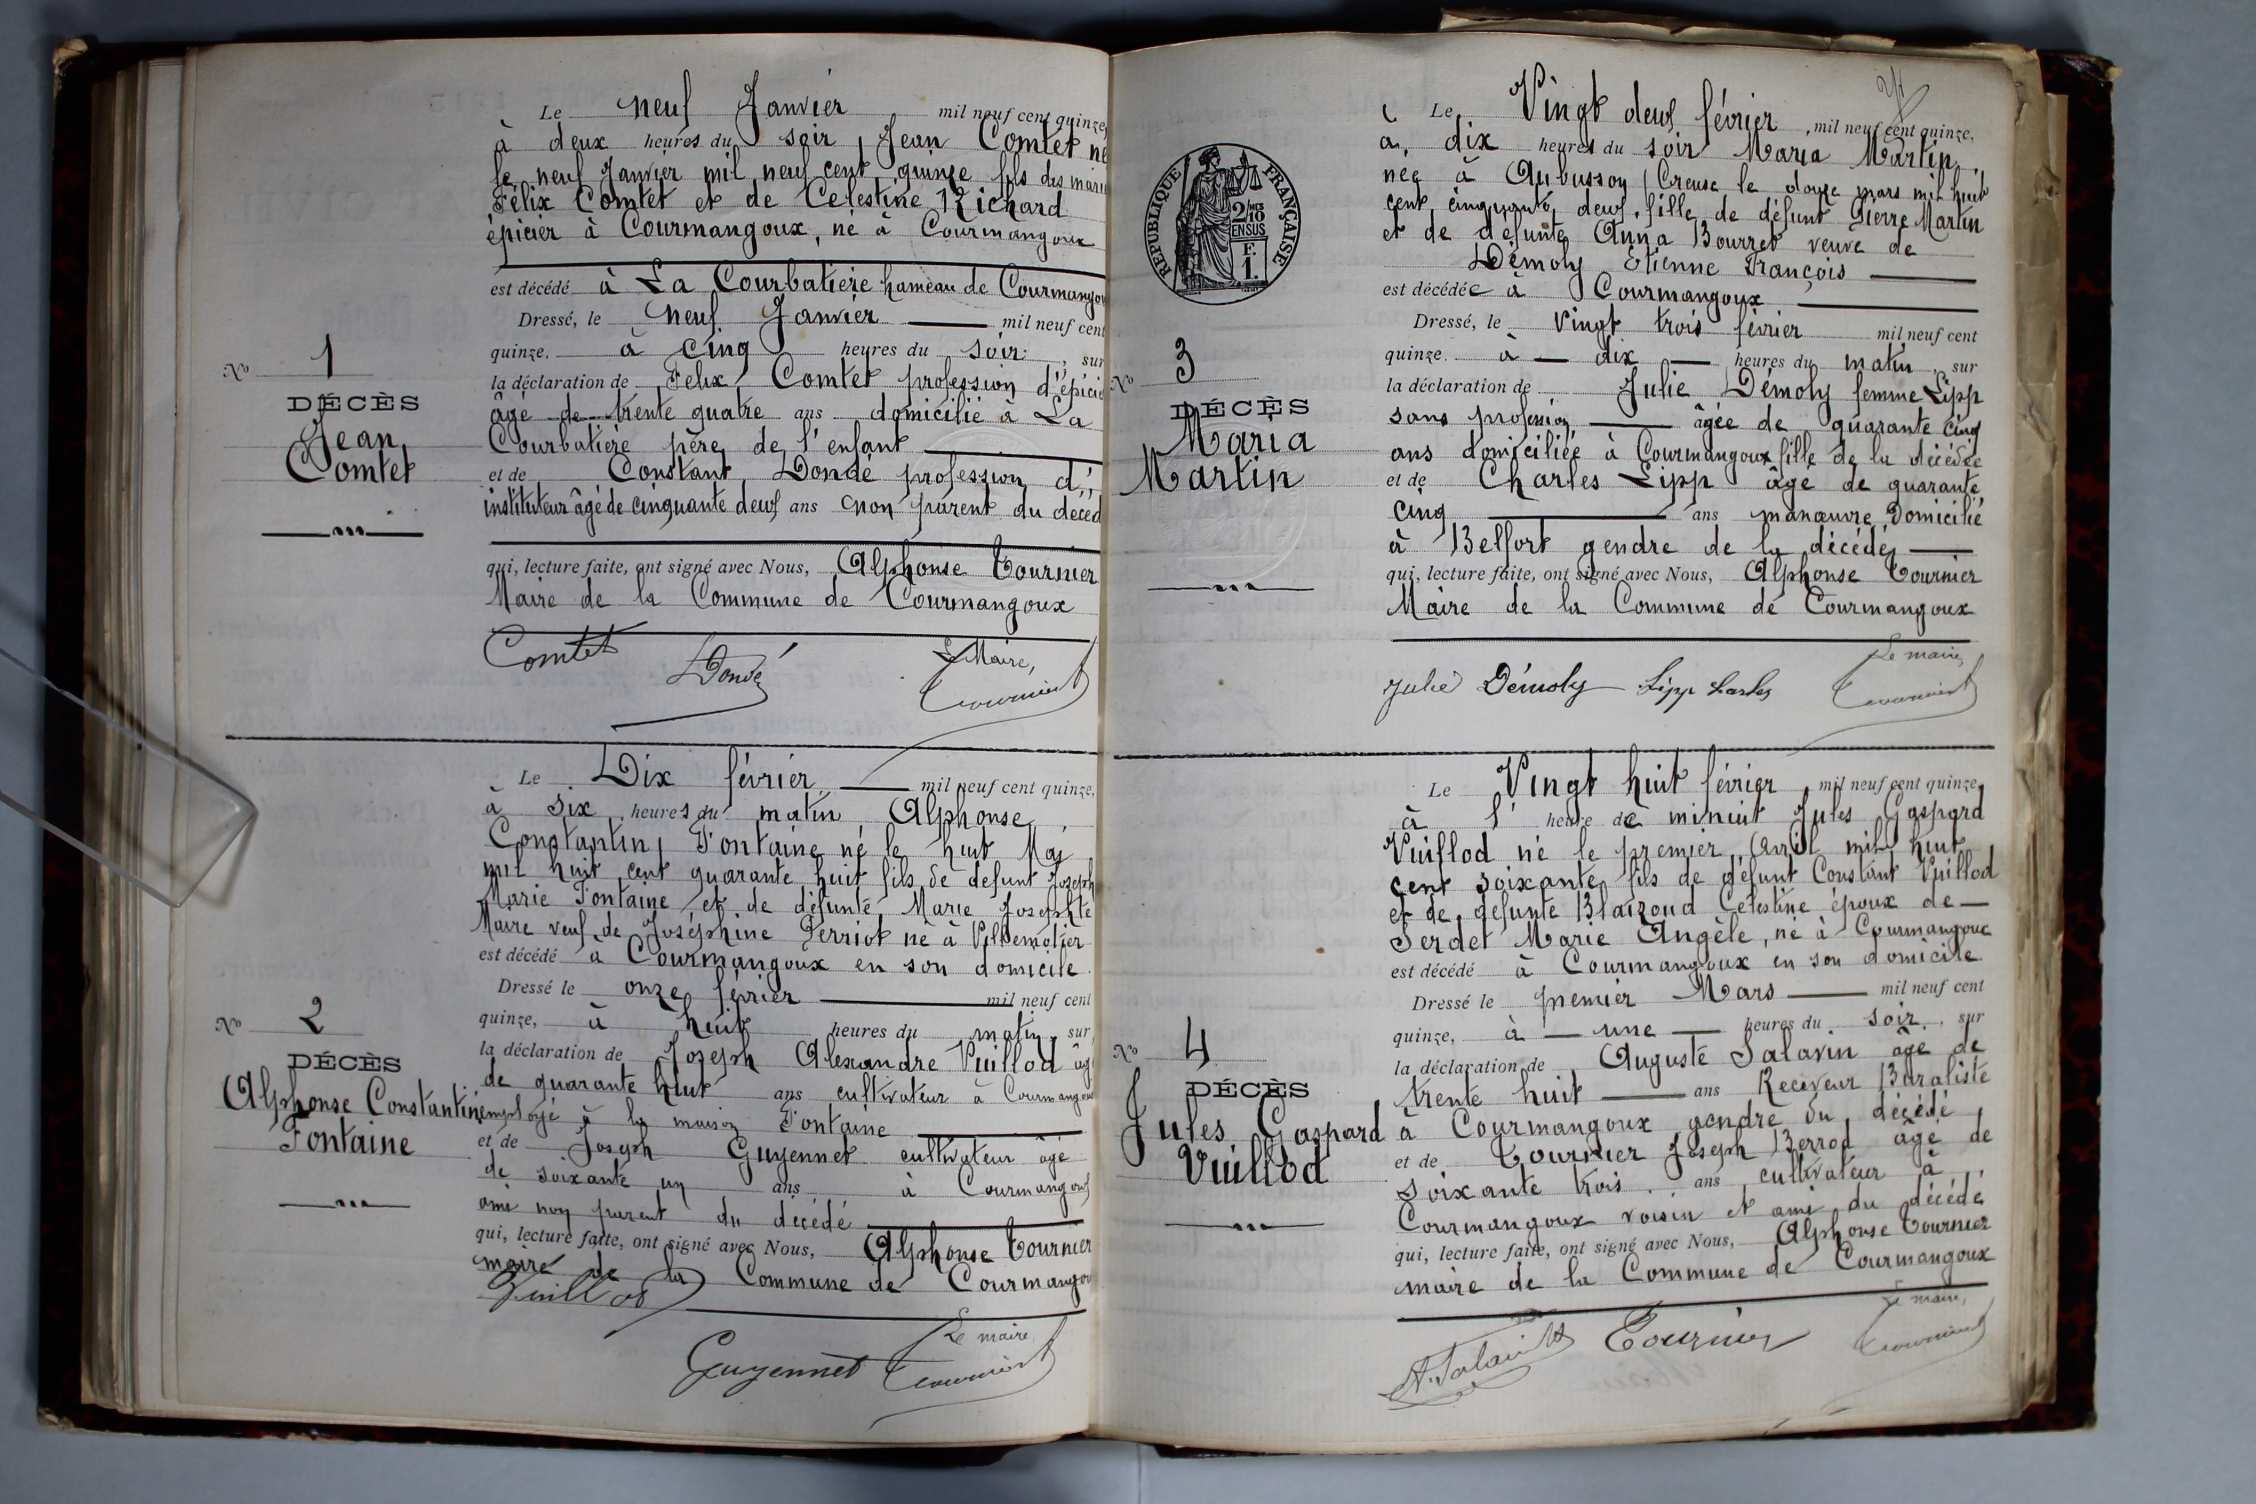 Le neuf Janvier mil neuf cent quinze,
à deux heures du soir, Jean Comtet né
le neuf Janvier mil neuf cent quinze fils des mariés
Félix Comtet et de Celestine Richard
épicier à Courmangoux, né à Courmangoux
est décédé à La Courbatière hameau de Courmangou
Dressé, le neuf Janvier mil neuf cent
quinze, à cinq heures du soir, sur
la déclaration de Felix Comtet profession d'épicier
âgé de trente quatre ans domicilié à La
Courbatière père de l'enfant
et de Constant Dondé profession d'
instituteur âgé de cinquante deux ans non parent du décéd
qui, lecture faite, ont signé avec Nous, Alphonse Tournier
Maire de la Commune de Courmangoux
No 1
DÉCÈS
Jean
Comtet
Comtet
Dondé
Le Maire,
Tournier
Le Dix février mil neuf cent quinze,
à six heures du matin Alphonse
Constantin Fontaine né le huit Mai
mil huit cent quarante huit fils de defunt Joseph
Marie Fontaine et de défunte Marie Josephte
Maire veuf de Joséphine Perriot né à Villemotier
est décédé à Courmangoux en son domicile
Dressé le onze février mil neuf cent
quinze, à huit heures du matin, sur
la déclaration de Joseph Alexandre Vuillod âgé
de quarante huit ans cultivateur à Courmangoux
employé à la maison Fontaine
et de Joseph Guyennet cultivateur âgé
de soixante un ans à Courmangoux
ami non parent du décédé
qui, lecture faite, ont signé avec Nous, Alphonse Tournier
maire de la Commune de Courmangou
No 2
DÉCÈS
Alphonse Constantin
Fontaine
Vuillod
Guyennet
Le maire,
Tournier
24
Le Vingt deux février, mil neuf cent quinze,
à dix heures du soir Maria Martin,
née à Aubusson (Creuse le douze mars mil huit
cent cinquante deux, fille de défunt Pierre Martin
et de défunte Anna Bourret veuve de
Démoly Etienne François
est décédée à Courmangoux
Dressé, le vingt trois février mil neuf cent
quinze, à dix heures du matin, sur
la déclaration de Julie Démoly femme Lipp
sans profession âgée de quarante cinq
ans domiciliée à Courmangoux fille de la décédée
et de Charles Lipp âgé de quarante
cinq ans manœuvre Domicilié
à Belfort gendre de la décédée
qui, lecture faite, ont signé avec Nous, Alphonse Tournier
Maire de la Commune de Courmangoux
REPUBLIQUE FRANÇAISE
2/10
EN SUS
F.
1.
No 3
DÉCÈS
Maria
Martin
Julie Démoly
Lipp Charles
Le maire,
Tournier
Le Vingt huit février, mil neuf cent quinze,
à l' heure de minuit Jules Gaspard
Vuillod né le premier Avril mil huit
cent soixante fils de défunt Constant Vuillod
et de défunte Blaizoud Celestine époux de
Serdet Marie Angèle, né à Courmangoux
est décédé à Courmangoux en son domicile
Dressé le premier Mars mil neuf cent
quinze, à une heures du soir, sur
la déclaration de Auguste Salavin âgé de
trente huit ans Receveur Buraliste
à Courmangoux gendre du décédé
et de Tournier Joseph Berrod âgé de
soixante trois ans cultivateur à
Courmangoux voisin et ami du décédé
qui, lecture faite, ont signé avec Nous, Alphonse Tournier
maire de la Commune de Courmangoux
No 4
DÉCÈS
Jules Gaspard
Vuillod
A. Salavin
Tournier
Le maire,
Tournier